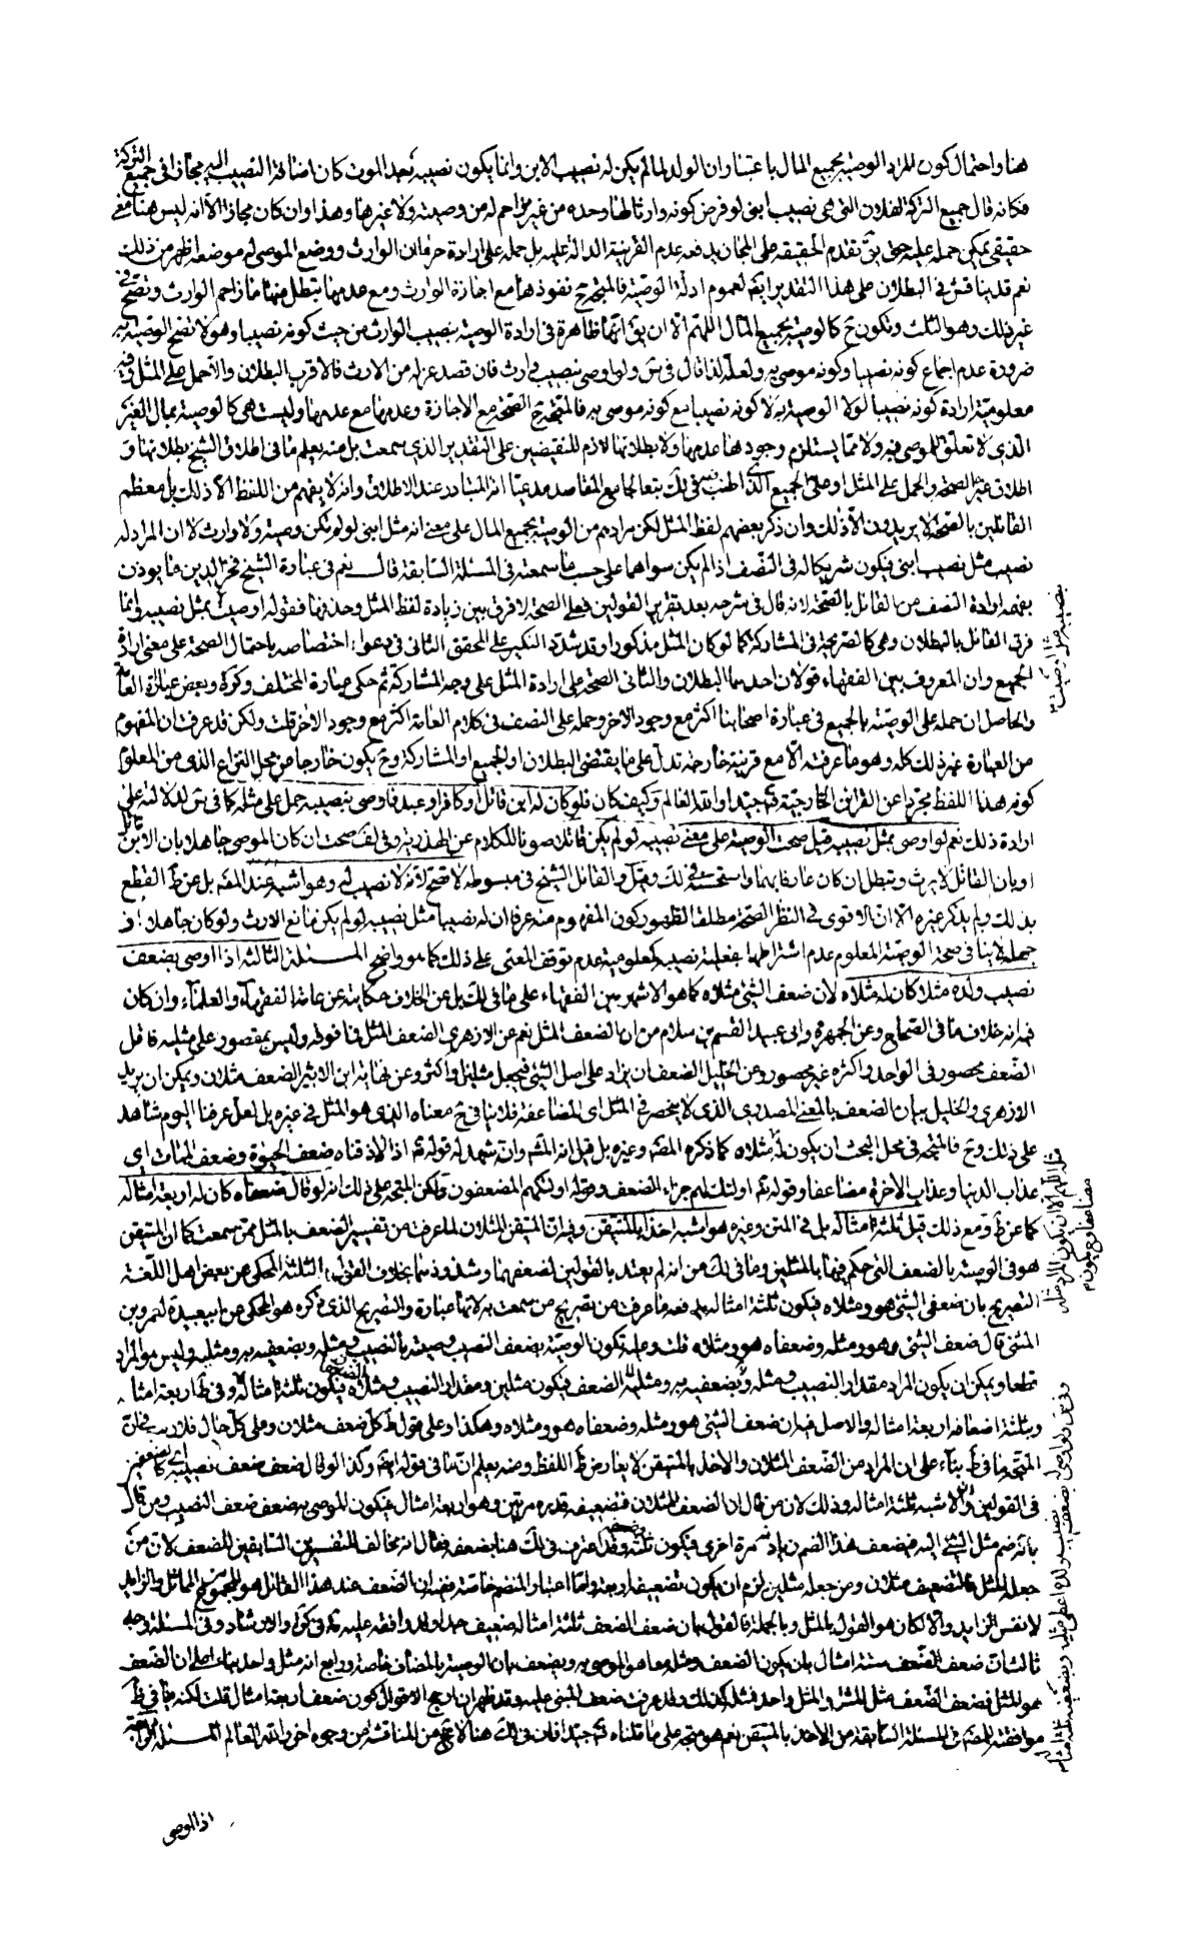 هنا واحتمال كون المراد الوصية بجميع المال باعتبار ان الولد لما لم يكن له نصيب الابن وانما يكون نصيبه بعد الموت كان اضافة النصيب اليه مجازا في جميع التركة
فكانه قال جميع التركة لفلان التي هي نصيب ابني لو فرض كونه وارثا لها وحده من غير مزاحم له من وصية ولا غيرها وهذا وان كان مجازا الا انه ليس هنا معنى
حقيقي يمكن حمله عليه حتى يق تقدم الحقيقة على المجاز يدفعه عدم القرينة الدالة عليه بل حمله على ارادة حرمان الوارث ووضع الموصى له موضعه اظهر من ذلك
نعم قد يناقش في البطلان على هذا التقدير ايضا لعموم ادلة الوصية فالمتجه ح نفوذها مع اجازة الوارث ومع عدمها تبطل منها ما زاحم الوارث وتصح في
غير ذلك وهو الثلث وتكون ح كالوصية بجميع المال اللهم الا ان يق انها ظاهرة في ارادة الوصية بنصيب الوارث من حيث كونه نصيبا وهو لا تصح الوصية به
ضرورة عدم اجتماع كونه نصيبا وكونه موصى به ولعله لذا قال في ش ولو اوصى بنصيب وارث فان قصد عزله من الارث فالاقرب البطلان والا حمل على المثل وفيه
معلومية ارادة كونه نصيبا لولا الوصية به لا كونه نصيبا مع كونه موصى به فالمتجه ح الصحة مع الاجازة وعدمها مع عدمها وليست هي كالوصية بمال الغير
الذي لا تعلق للموصي فيه ولا مما يستلزم وجودها عدمها ولا بطلانها لازم للنقيضين على التقدير الذي سمعت بل منه يعلم ما في اطلاق الشيخ بطلانها و
اطلاق غيره الصحة والحمل على المثل او على الجميع الذي اطنب في لك تبعا لجامع المقاصد مدعيا انه المتبادر عند الاطلاق وانه لا يفهم من اللفظ الا ذلك بل معظم
القائلين بالصحة لا يريدون الا ذلك وان ذكر بعضهم لفظ المثل لكن مرادهم من الوصية بجميع المال على معنى انه مثل ابني لو لم تكن وصية ولا وارث لا ان المراد له
نصيب مثل نصيب ابني فيكون شريكا له في النصف اذا لم يكن سواهما على حسب ما سمعته في المسئلة السابقة قال نعم في عبارة الشيخ فخر الدين ما يوذن
بفهمه ارادة النصف من القائل بالصحة لانه قال في شرحه بعد تقرير القولين فعلى الصحة لا فرق بين زيادة لفظ المثل وحذفها فقوله اوصيت بمثل نصيبه انما
فرق القائل بالبطلان وهي كالصريحة في المشاركة كما لو كان المثل مذكورا وقد شدد النكير على المحقق الثاني في دعواه اختصاصه باحتمال الصحة على معنى ارادة
الجميع وان المعروف بين الفقهاء قولان احدهما البطلان والثاني الصحة على ارادة المثل على وجه المشاركة ثم حكى عبارة المختلف وكرة وبعض عبارة العامة
والحاصل ان حمله على الوصية بالجميع في عبارة اصحابنا اكثر مع وجود الاخر وحمله على النصف في كلام العامة اكثر مع وجود الاخر قلت ولكن قد عرفت ان المفهوم
من العبارة غير ذلك كله وهو ما عرفته الا مع قرينة خارجة تدل على ما يقتضي البطلان او الجميع او المشاركة وح يكون خارجا من محل النزاع الذي من المعلوم
كونه هذا اللفظ مجردا عن القرائن الخارجية فت جيدا والله العالم وكيف كان فلو كان له ابن قاتل او كافر او عبد فاوصى بنصيبه حمل على مثله كما في ش لدلالته على
ارادة ذلك نعم لو اوصى بمثل نصيبه قيل صحت الوصية على معنى نصيبه لو لم يكن قاتلا صونا للكلام عن الهذرية وفي لف صحت ان كان الموصي جاهلا بان الابن قاتل
او بان القاتل لا يرث وتبطل ان كان عارفا بهما واستحسنه في لك وقيل والقائل الشيخ في مبسوطه لا تصح لانه لا نصيب له وهو اشبه عند المص بل عن ظ القطع
بذلك ولم يذكر غيره الا ان الاقوى في النظر الصحة مطلقا لظهور كون المفهوم منه عرفا ان له نصيبا مثل نصيبه لو لم يكن مانع الارث ولو كان جاهلا اذ
جهله لا ينافي صحة الوصية المعلوم عدم اشتراطها بفعلية نصيبه كمعلومية عدم توقف المعنى على ذلك كما هو واضح المسئلة الثالثة اذا اوصى بضعف
نصيب ولده مثلا كان له مثلاه لان ضعف الشيء مثلاه كما هو الاشهر بين الفقهاء على ما في لك بل عن الخلاف حكايته عن عامة الفقهاء والعلماء وان كان
فيه انه خلاف ما في الصحاح وعن الجمهرة وابي عبيد القسم بن سلام من ان الضعف المثل نعم عن الازهري الضعف المثل فما فوقه وليس بمقصور على مثليه فاقل
الضعف محصور في الواحد واكثره غير محصور وعن الخليل الضعف ان يزاد على اصل الشيء فيجعل مثلين او اكثر وعن نهاية ابن الاثير الضعف مثلان ويمكن ان يريد
الازهري والخليل بيان الضعف بالمعنى المصدري الذي لا ينحصر في المثل اي المضاعفة فلا ينافي ح معناه الذي هو المثل في غيره بل لعل عرفنا اليوم شاهد
على ذلك وح فالمتجه في محل البحث ان يكون له مثلاه كما ذكره المص وغيره بل قيل انه المش وانه شهد له قوله تم اذا لاذقناه ضعف الحيوة وضعف الممات اي
عذاب الدنيا وعذاب الاخرة مضاعفا وقوله تم اولئك لهم جزاء الضعف وقوله اولئك هم المضعفون ولكن المتجه على ذلك انه لو قال ضعفاه كان له اربعة امثاله
كما عن ظ ومع ذلك قيل ثلثة امثاله بل في المتن وغيره هو اشبه اخذا بالمتيقن وفيه ان المتيقن المثلان لما عرفت من تفسير الضعف بالمثل ممن سمعت كما ان المتيقن
هو في الوصية بالضعف التي حكم فيها بالمثلين وما في لك من انه لم يعتد بالقولين لضعفهما وشذوذهما بخلاف القول بالثلثة المحكي عن بعض اهل اللغة
التصريح بان ضعفي الشيء هو ومثلاه فيكون ثلثة امثاله يدفعه ما عرفت من تصريح من سمعت به لانها عبارة والتصريح الذي ذكره هو المحكي عن ابي عبيدة لتمر بن
المثنى قال ضعف الشيء هو ومثله وضعفاه هو ومثلاه قلت وعليه تكون الوصية بضعف النصيب وصية بالنصيب ومثله وبضعفيه به ومثليه وليس هو المراد
قطعا ويمكن ان يكون المراد مقدار النصيب ومثله وبضعفيه به ومثليه الضعف فيكون مثلين ومقدار النصيب ومثلاه فيكون ثلثة امثاله وفي ظ اربعة امثاله
وبثلثة اضعافه اربعة امثاله والاصل فيه ان ضعف الشيء هو ومثله وضعفاه هو ومثلاه وهكذا وعلى قول ظ كل ضعف مثلان وعلى كل حال فلا ريب في ان
المتجه ما في ظ بناء على ان المراد من الضعف المثلان والاخذ بالمتيقن لا يعارض ظ اللفظ ومنه يعلم ان ما في قوله ايضا وكذا لو قال ضعف ضعف نصيبه
في القولين والاشبه ثلثة امثاله وذلك لان من قال ان الضعف المثلان فتضعيفه قدره مرتين وهو اربعة امثال فيكون للموصى به ضعف ضعف النصيب ومن قال
بانه ضم مثل الشيء اليه فيضعف هذا الضم بان يزاد مرة اخرى فيكون ثلثة وقد اعترف في لك هنا بضعفه فقال انه مخالف للتفسيرين السابقين للضعف لان من
جعله المثل فالتضعيف مثلان ومن جعله مثلين لزم ان يكون تضعيفه اربعة واما اعتبار المنضم خاصة ففيه ان الضعف عند هذا القائل هو المجموع من المماثل والزايد
لا نفس الزايد والا لكان هو القول بالمثل وبالجملة فالقول بان ضعف الضعف ثلثة امثاله ضعيف جدا وان وافقه عليه في كرة والارشاد وفي المسئلة وجه
ثالث ان ضعف الضعف ستة امثال بان يكون الضعف ومثله معا هو الموصى به ويضعف بان الوصية بالمضاف خاصة ورابع انه مثل واحد بناء على ان الضعف
هو المثل فضعف الضعف مثل المثل والمثل واحد فمثله كذلك وقد عرفت ضعف المبني عليه وقد ظهر ان ارجح الاقوال كون ضعفه اربعة امثال قلت لكنه ينافي ظ
موافقته للمص في المسئلة السابقة من الاخذ بالمتيقن نعم هو متجه على ما قلناه فت جيدا فان في لك هنا لا يخ من المناقشة من وجوه اخر والله العالم المسئلة الرابعة
اذا اوصى